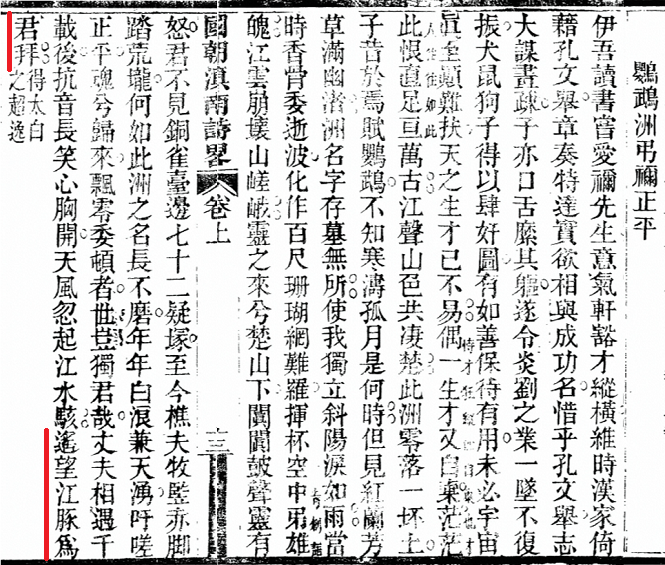 鸚鵡洲弔禰正平
伊吾讀書嘗愛禰先生意氣軒豁才縱橫維時漢家倚
藉孔文舉章奏特達實欲相與成功名惜乎孔文舉志
大謀畫疎子亦口舌縻其軀遂令炎劉之業一墜不復
振犬鼠狗子得以肆好圖有如善保待有用未必宇宙
眞全顛難扶天之生才已不易偶一生才又自棄茫茫
此恨直足亘萬古江聲山色共凄楚此洲零落一坏土
子昔於焉賦鸚鵡不知寒濤孤月是何時但見紅蘭芳
草滿幽渚洲名字存墓無所使我獨立斜陽淚如雨當
時香骨委逝波化作百尺珊瑚網難羅揮杯空中弔雄
魄江雲崩壞山嵯峨靈之來兮楚山下闐闐鼓聲靈有
國朝滇南詩畧 卷上 三
怒君不見銅雀臺邊七十二疑塚至今樵夫牧豎赤脚
踏荒壠何如此洲之名長不磨年年白浪兼天湧吁嗟
正平魂兮歸來飄零委頓者世豈獨君哉丈夫相遇千
載後抗音長笑心胸開天風忽起江水駭遙望江豚爲
君拜得太白之超逸